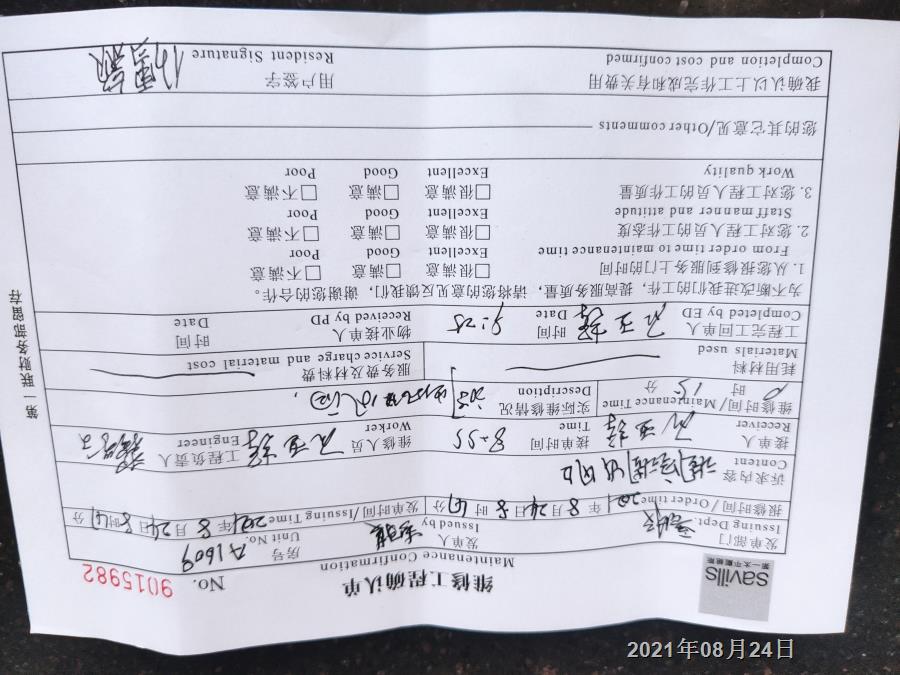 savills
第一太平戴维斯
维修工程确认单
Maintenance Confirmation
No. 9015982
发单部门
Issuing Dept.
发单人
Issued by
房号
Unit No. A1609
报修时间/Order time 2021年8月24日8时 分
发单时间/Issuing Time 2021年8月24日8时 分
诉求内容
Content
接单人
Receiver
接单时间 8:55
Time
维修人员
Worker
工程负责人
Engineer
维修时间/Maintenance Time
时15分
实际维修情况
Description
耗用材料
Materials used
服务费及材料费
Service charge and material cost
工程完工回单人
Completed by ED
时间 9:25
Date
物业接单人
Received by PD
时间
Date
为不断改进我们的工作，提高服务质量，请将您的意见反馈我们，谢谢您的合作。
1. 从您报修到服务上门的时间 □很满意 □满意 □不满意
From order time to maintenance time Excellent Good Poor
2. 您对工程人员的工作态度 □很满意 □满意 □不满意
Staff manner and attitude Excellent Good Poor
3. 您对工程人员的工作质量 □很满意 □满意 □不满意
Work quality Excellent Good Poor
您的其它意见/Other comments
我确认以上工作完成和有关费用
Completion and cost confirmed
用户签字
Resident Signature
第一联财务部留存
2021年08月24日